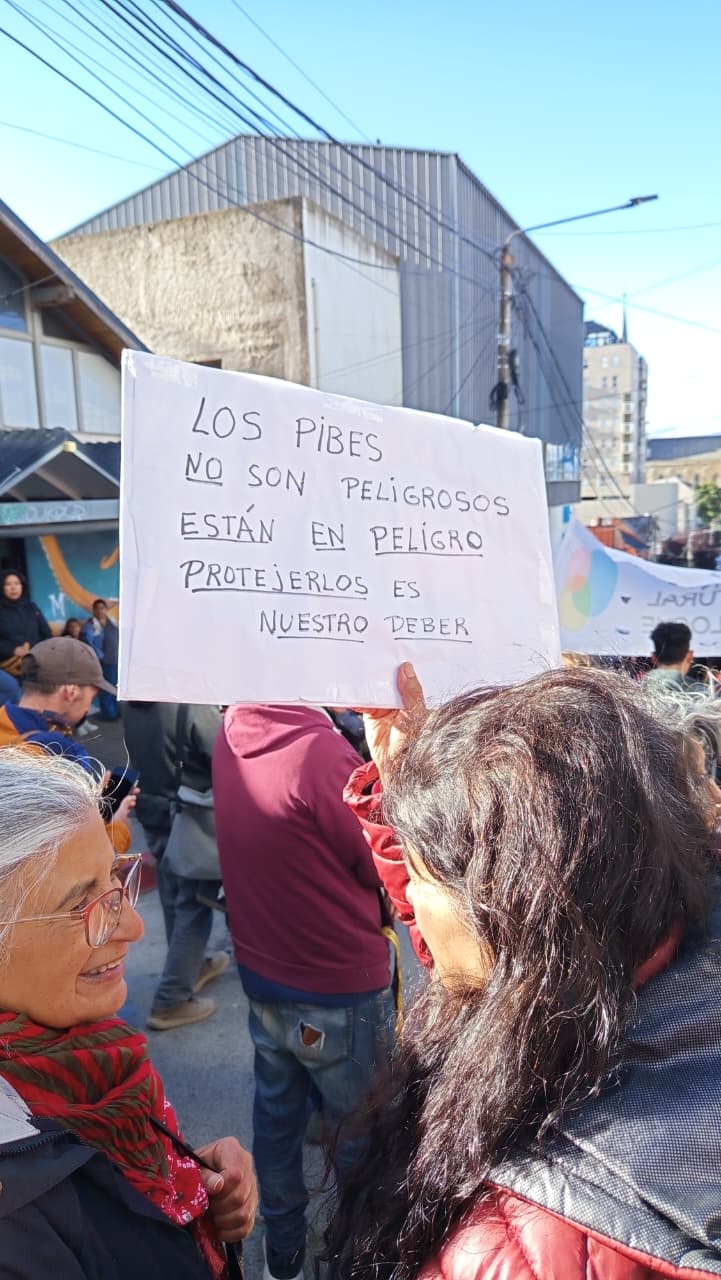 LOS PIBES
NO SON PELIGROSOS
ESTÁN EN PELIGRO
PROTEJERLOS ES
NUESTRO DEBER